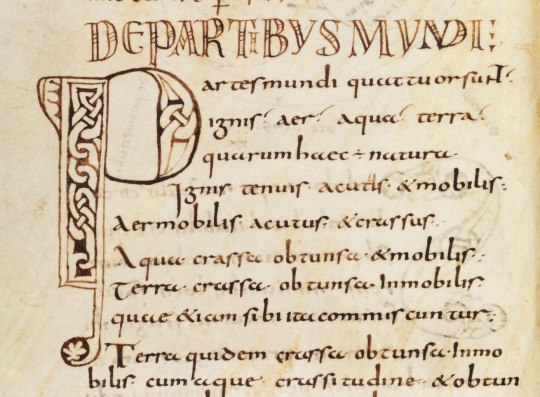 DE PARTIBUS MUNDI:
Partes mundi quattuor sunt.
Ignis. aer. aqua. terra.
quarum haec ÷ natura.
Ignis tenuis acutus & mobilis:
Aer mobilis acutus & crassus.
Aqua crassa obtunsa & mobilis.
Terra crassa obtunsa inmobilis
quae &iam sibi ita commiscuntur:
Terra quidem crassa obtunsa inmo
bilis cum aque crassitudine & obtun